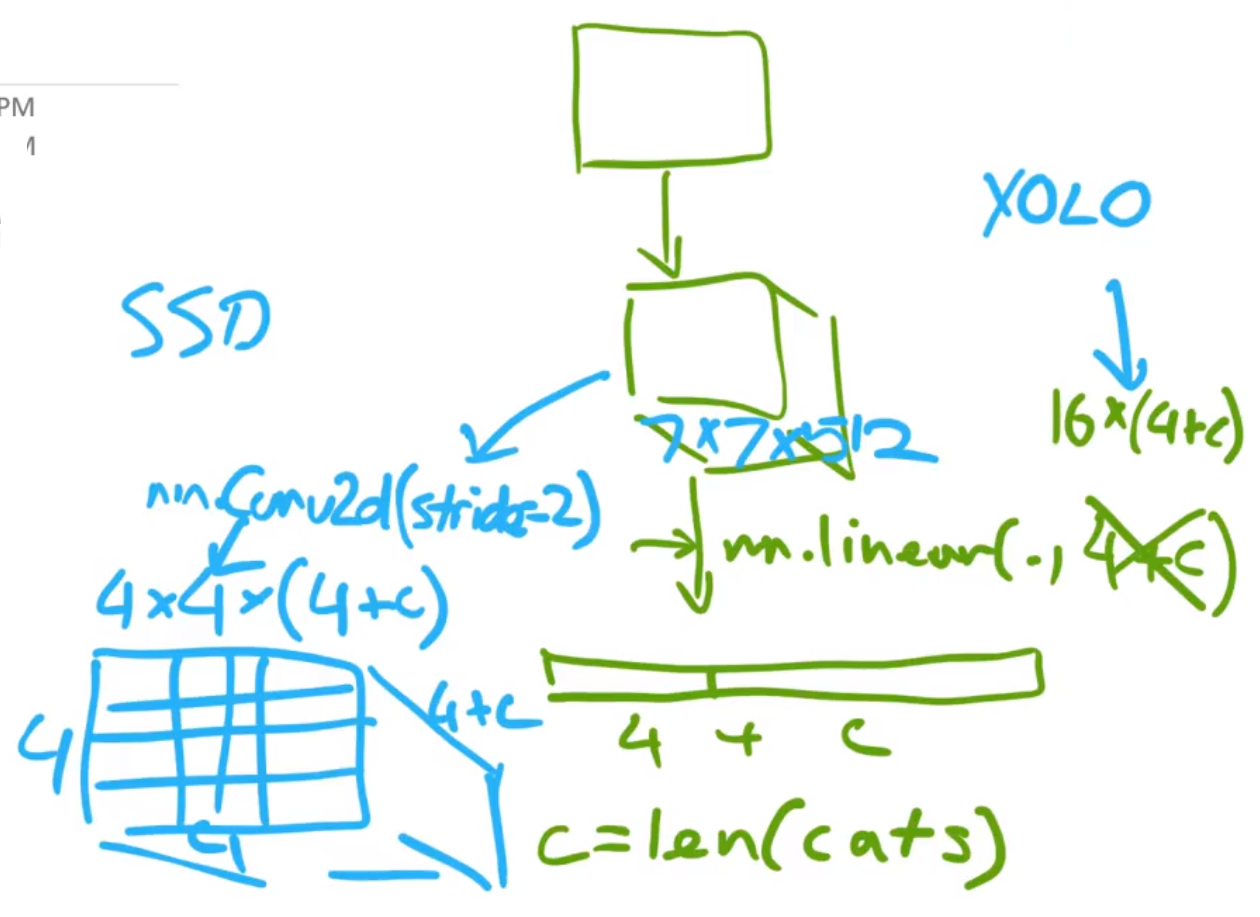 PM
M
YOLO
SSD
16×(4+c)
7×7×512
nn.Conv2d(stride=2)
nn.linear(., 4+c)
4×4×(4+c)
4+c
4
4
4 + c
c=len(cats)